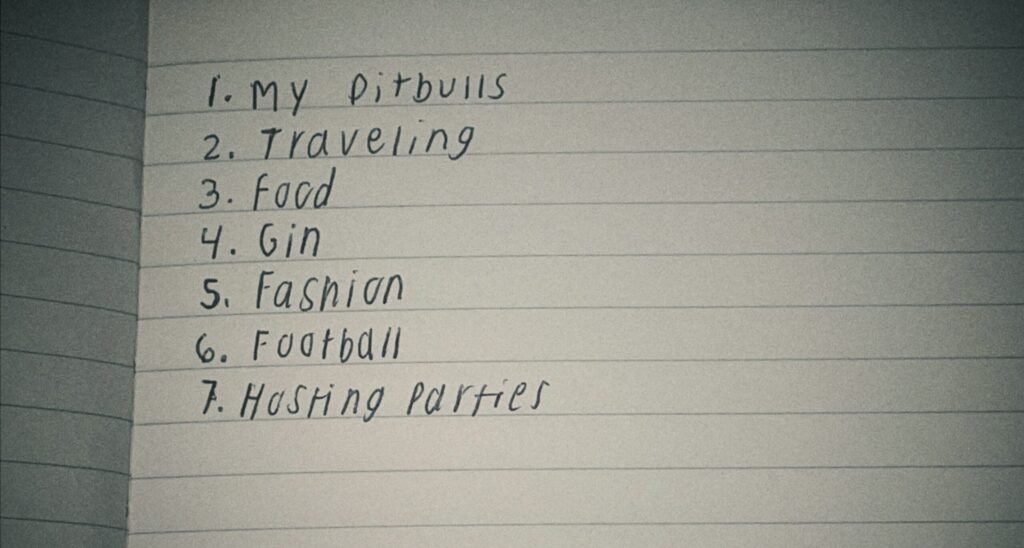 1. My Pitbulls
2. Traveling
3. Food
4. Gin
5. Fashion
6. Football
7. Hosting Parties